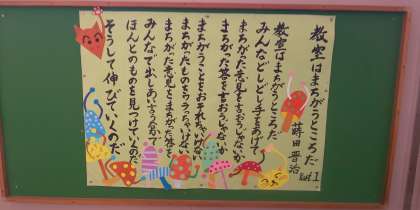 教室はまちがうところだ
蒔田晋治
教室はまちがうところだ
みんなどしどし手をあげて
まちがった意見を言おうじゃないか
まちがった答を言おうじゃないか
まちがうことをおそれちゃいけない
まちがったものをワラっちゃいけない
まちがった意見をまちがった答を
みんなで出しあい言うなかで
ほんとのものを見つけていくのだ
そうして伸びていくのだ